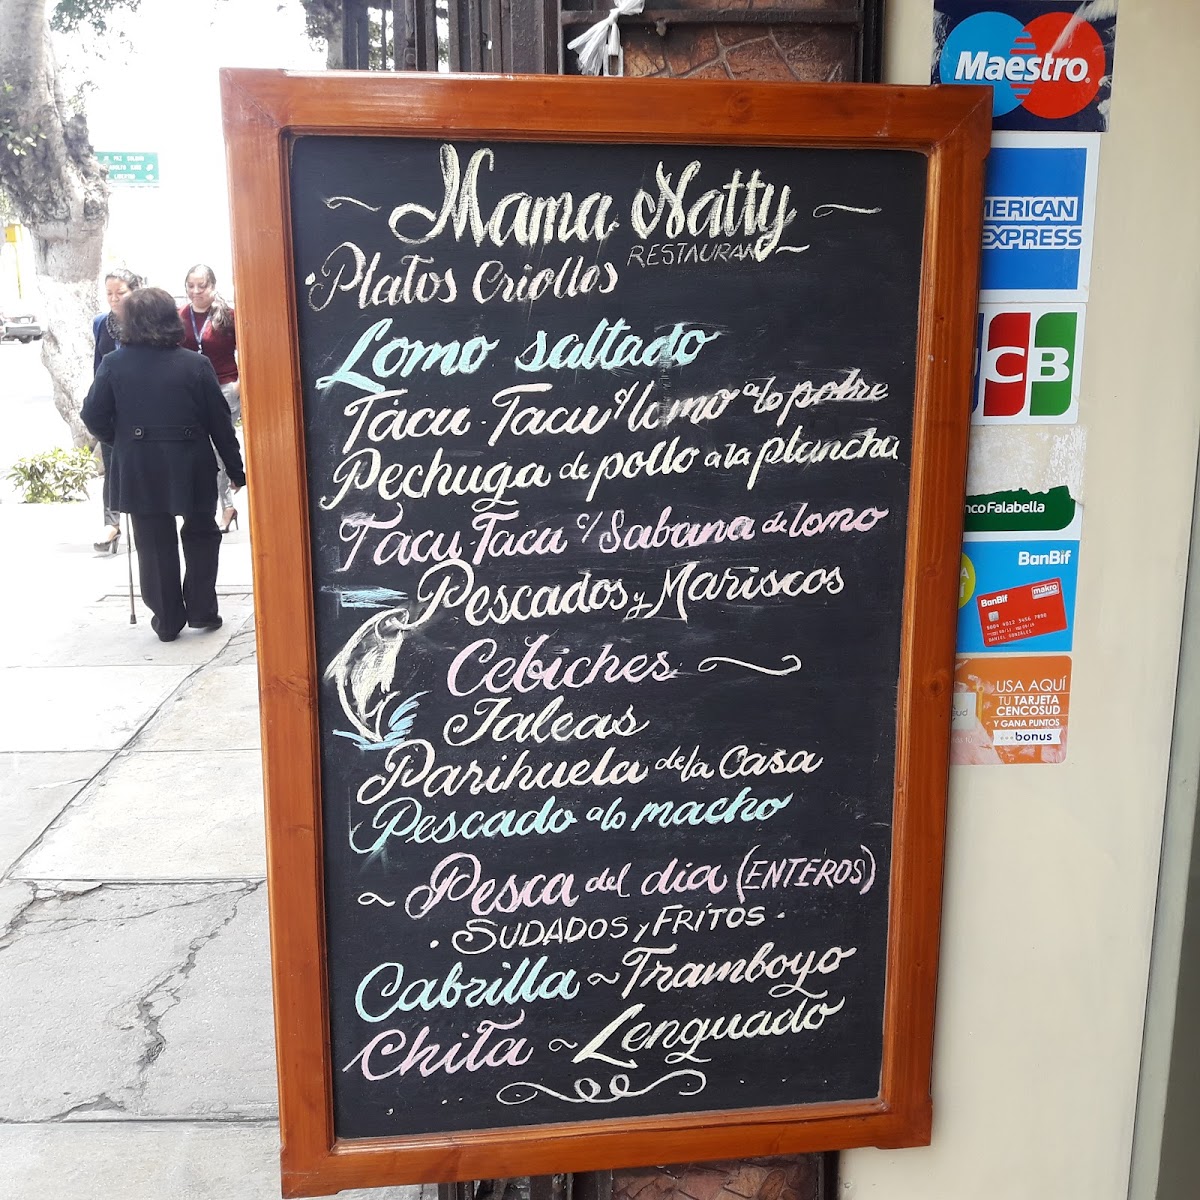 ~ Mama Natty ~
RESTAURANT
Platos Criollos
Lomo saltado
Tacu-Tacu c/ lomo a lo pobre
Pechuga de pollo a la plancha
Tacu-Tacu c/ Sabana de lomo
Pescados y Mariscos
Cebiches
Jaleas
Parihuela de la Casa
Pescado a lo macho
~ Pesca del dia (ENTEROS)
· SUDADOS y FRÍTOS ·
Cabrilla ~ Tramboyo
Chita ~ Lenguado
Maestro
AMERICAN
EXPRESS
JCB
Banco Falabella
BanBif
BanBif
makro
USA AQUÍ
TU TARJETA
CENCOSUD
Y GANA PUNTOS
bonus